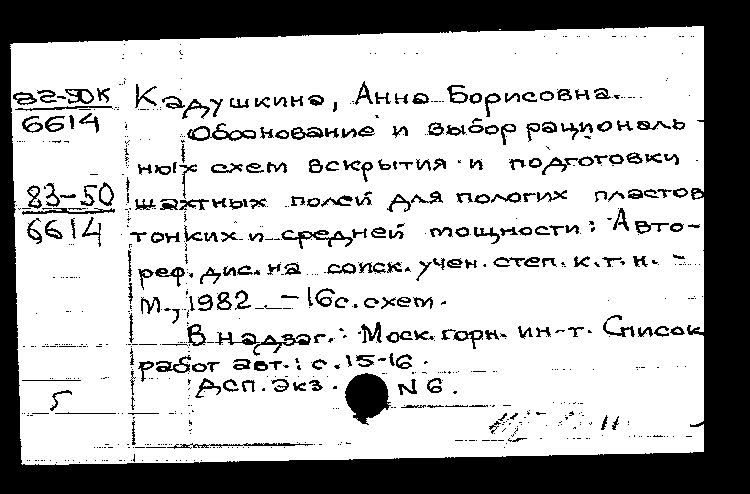 82-50К
6614
83-50
6614
5
Кадушкина, Анна Борисовна.
Обоснование и выбор рациональ-
ных схем вскрытия и подготовки
шахтных полей для пологих пластов
тонких и средней мощности: Авто-
реф. дис. на соиск. учен. степ. к.т.н. -
М., 1982. - 16 с. схем.
В надзаг.: Моск. горн. ин-т. Список
работ авт.: с. 15-16.
ДСП. Экз. N 6.